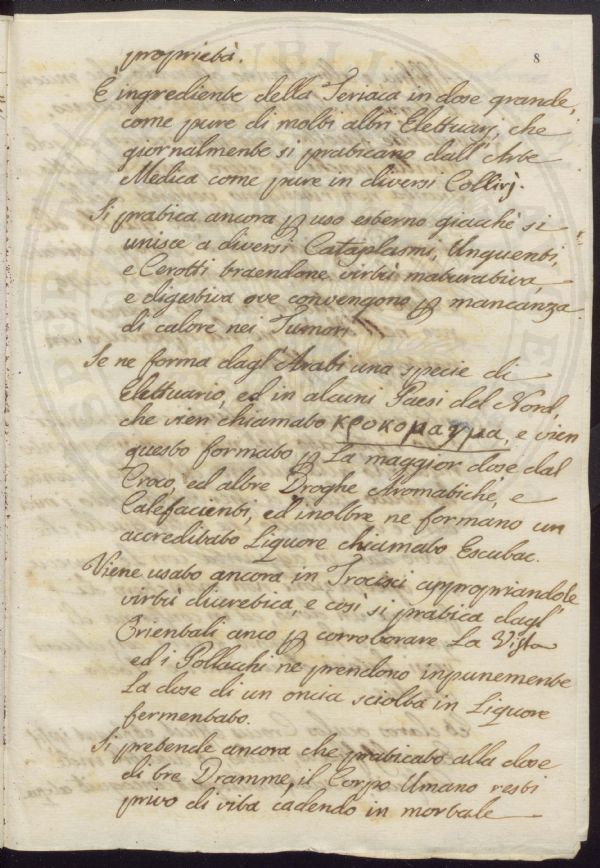 proprietà.
8
È ingrediente della Teriaca in dose grande,
come pure di molti altri Elettuarj, che
giornalmente si praticano dall'Arte
Medica come pure in diversi Collirj.
Si pratica ancora p uso esterno giacchè si
unisce a diversi Cataplasmi, Unguenti,
e Cerotti traendone virtù maturativa,
e digestiva ove convengono p mancanza
di calore nei Tumori
Se ne forma dagl'Arabi una specie di
Elettuario, ed in alcuni Paesi del Nord,
che vien chiamato κροκομαγμα, e vien
questo formato p La maggior dose dal
Croco, ed altre Droghe Aromatiche, e
Calefacienti, ed inoltre ne formano un
accreditato Liquore chiamato Escubac.
Viene usato ancora in Trocisci appropriandole
virtù diuretica, e così si pratica dagl'
Orientali anco p corroborare La Vista
ed i Pollacchi ne prendono inpunemente
La dose di un oncia sciolta in Liquore
fermentato.
Si pretende ancora che praticato alla dose
di tre Dramme, il Corpo Umano resti
privo di vita cadendo in mortale